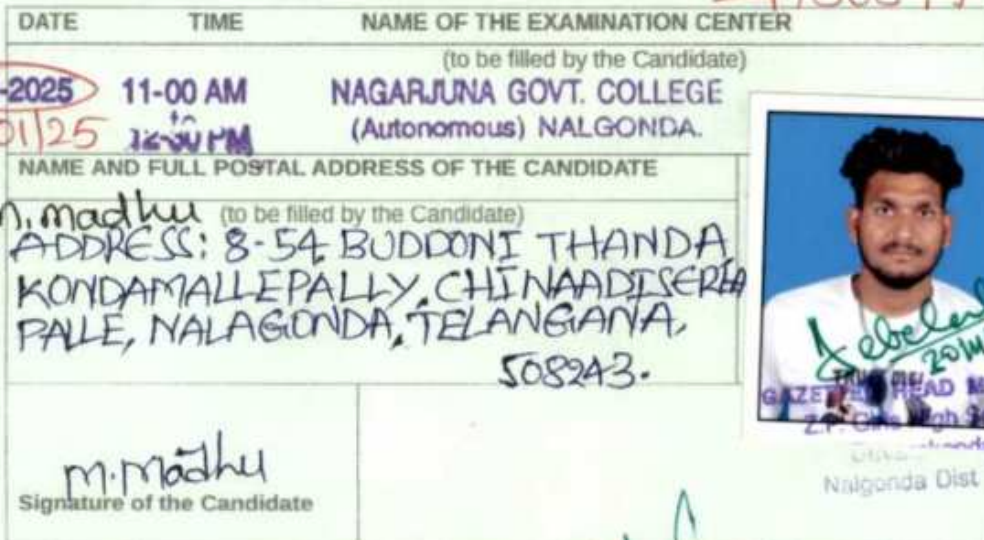 DATE TIME NAME OF THE EXAMINATION CENTER
(to be filled by the Candidate)
-2025 11-00 AM NAGARJUNA GOVT. COLLEGE
01/25 to 12-30 PM (Autonomous) NALGONDA.
NAME AND FULL POSTAL ADDRESS OF THE CANDIDATE
M. Madhu (to be filled by the Candidate)
ADDRESS: 8-54 BUDDONI THANDA,
KONDAMALLEPALLY, CHINAADISERLA
PALLE, NALAGONDA, TELANGANA,
508243.
GAZETTED HEAD M
Z.P. Girls High S
Nalgonda Dist
M. Madhu
Signature of the Candidate